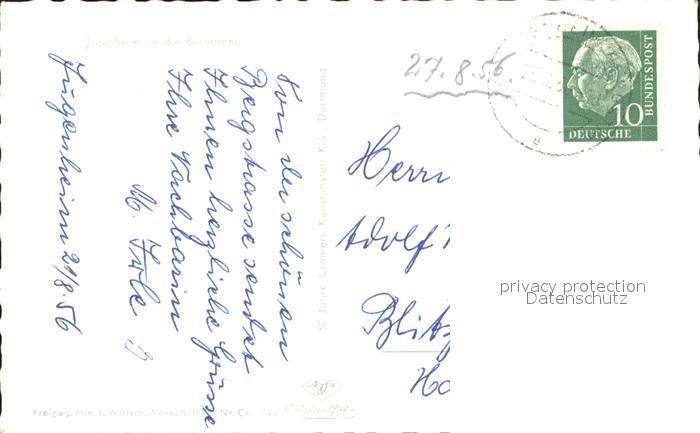 Jugenheim an der Bergstraße
Jugenheim 21/8.56
Von der schönen
Bergstrasse sendet
Ihnen herzliche Grüsse
Ihre Nachbarin
M.
27.8.56.
BUNDESPOST
10
DEUTSCHE
Herrn
Adolf
Blitz
Ho
50 Jahre Cramers Kunstanstalt KG. Dortmund
privacy protection
Datenschutz
Freigeg. Min. f. Wirtsch.-Verkehr Nr. Cr.
Agfa
Originalfoto